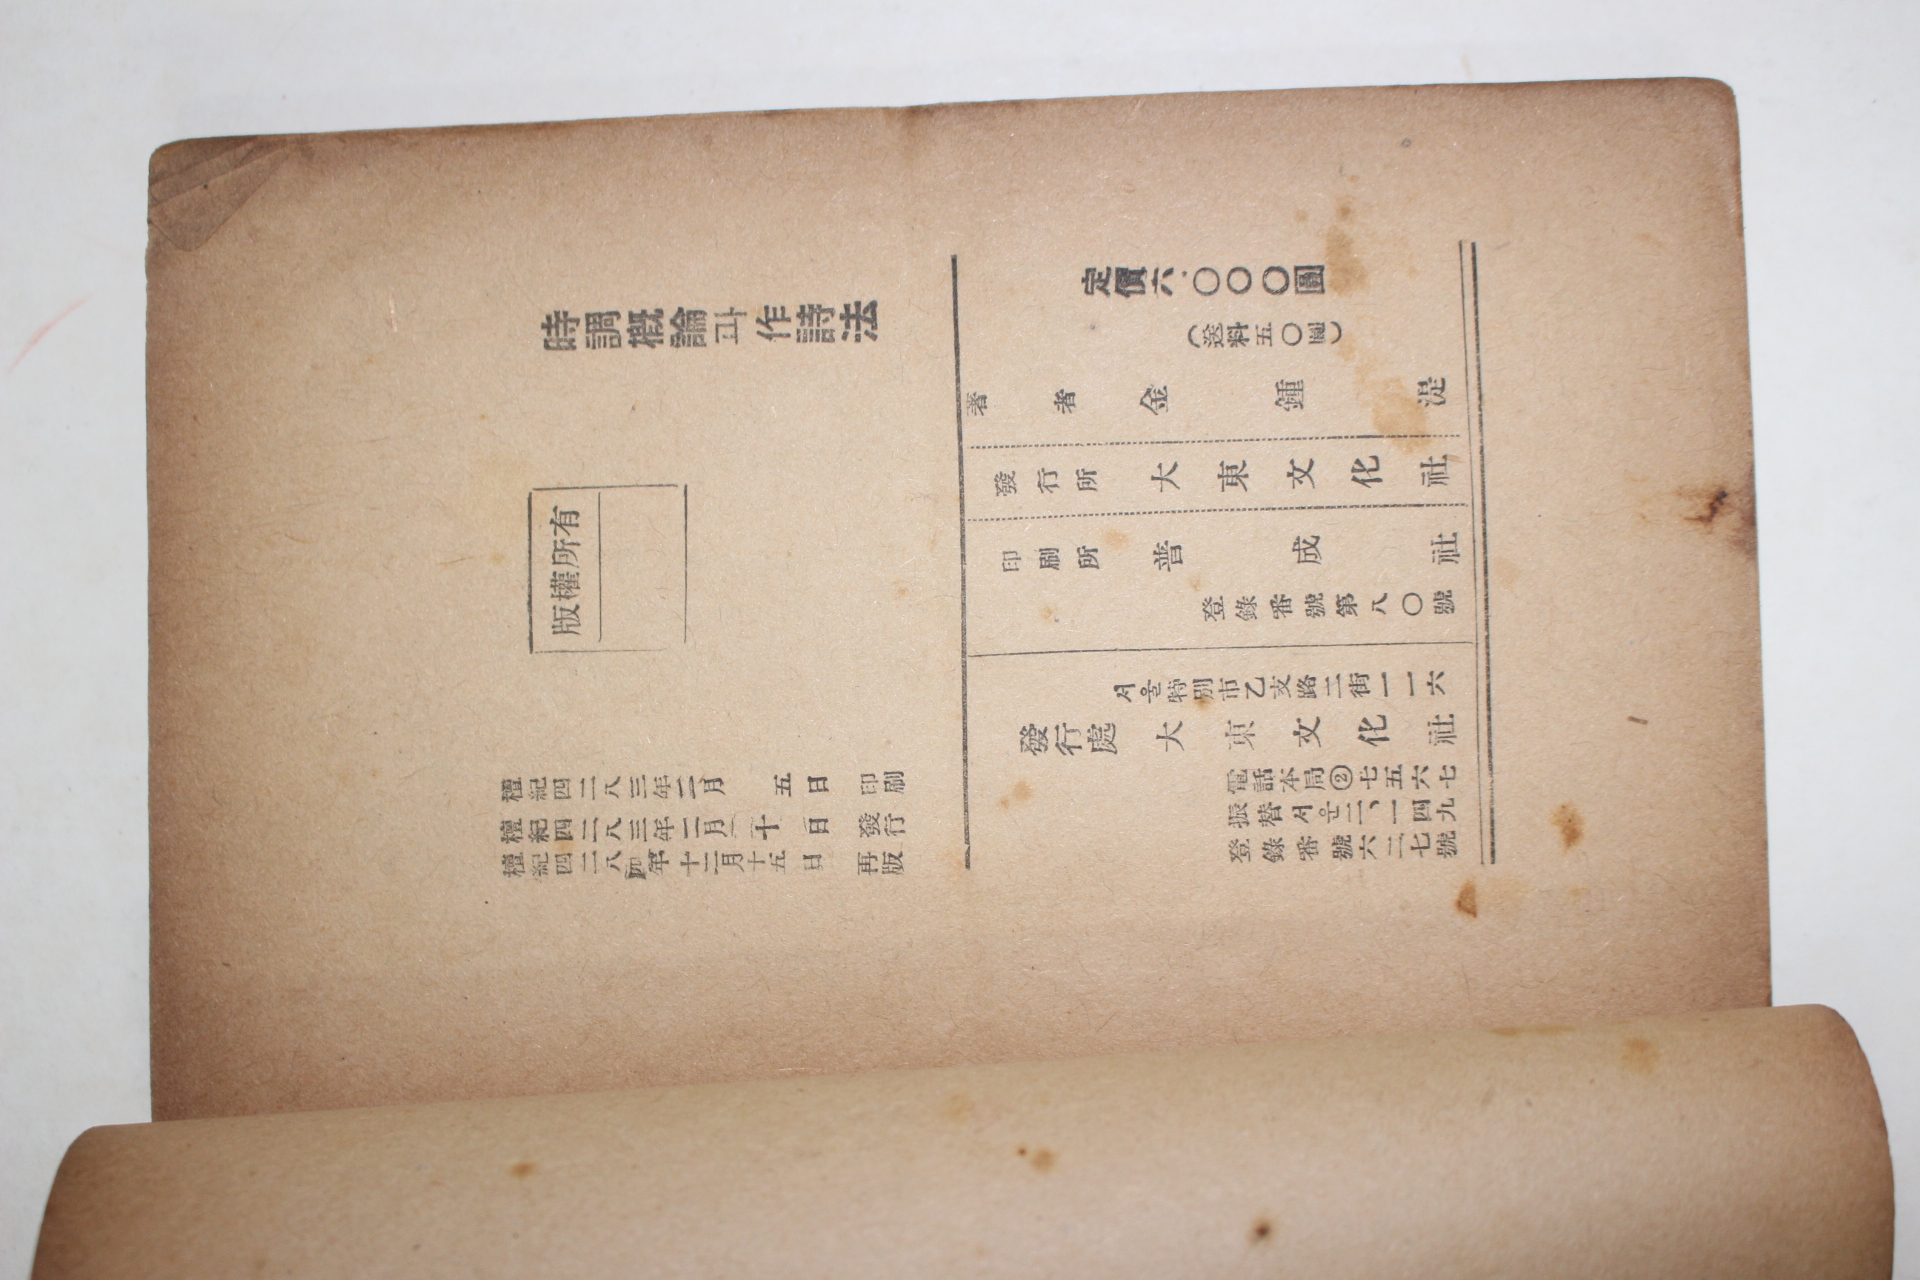 時調概論과作詩法
版權所有
檀紀四二八三年二月 五日 印刷
檀紀四二八三年二月 十日 發行
檀紀四二八四年十二月十五日 再版
定價六·〇〇〇圓
(送料五〇圓)
著者 金鍾湜
發行所 大東文化社
印刷所 普成社
登錄番號第八〇號
서울特別市乙支路二街一一六
發行處 大東文化社
電話本局②七五六七
振替서울二、一四九
登錄番號六二七號